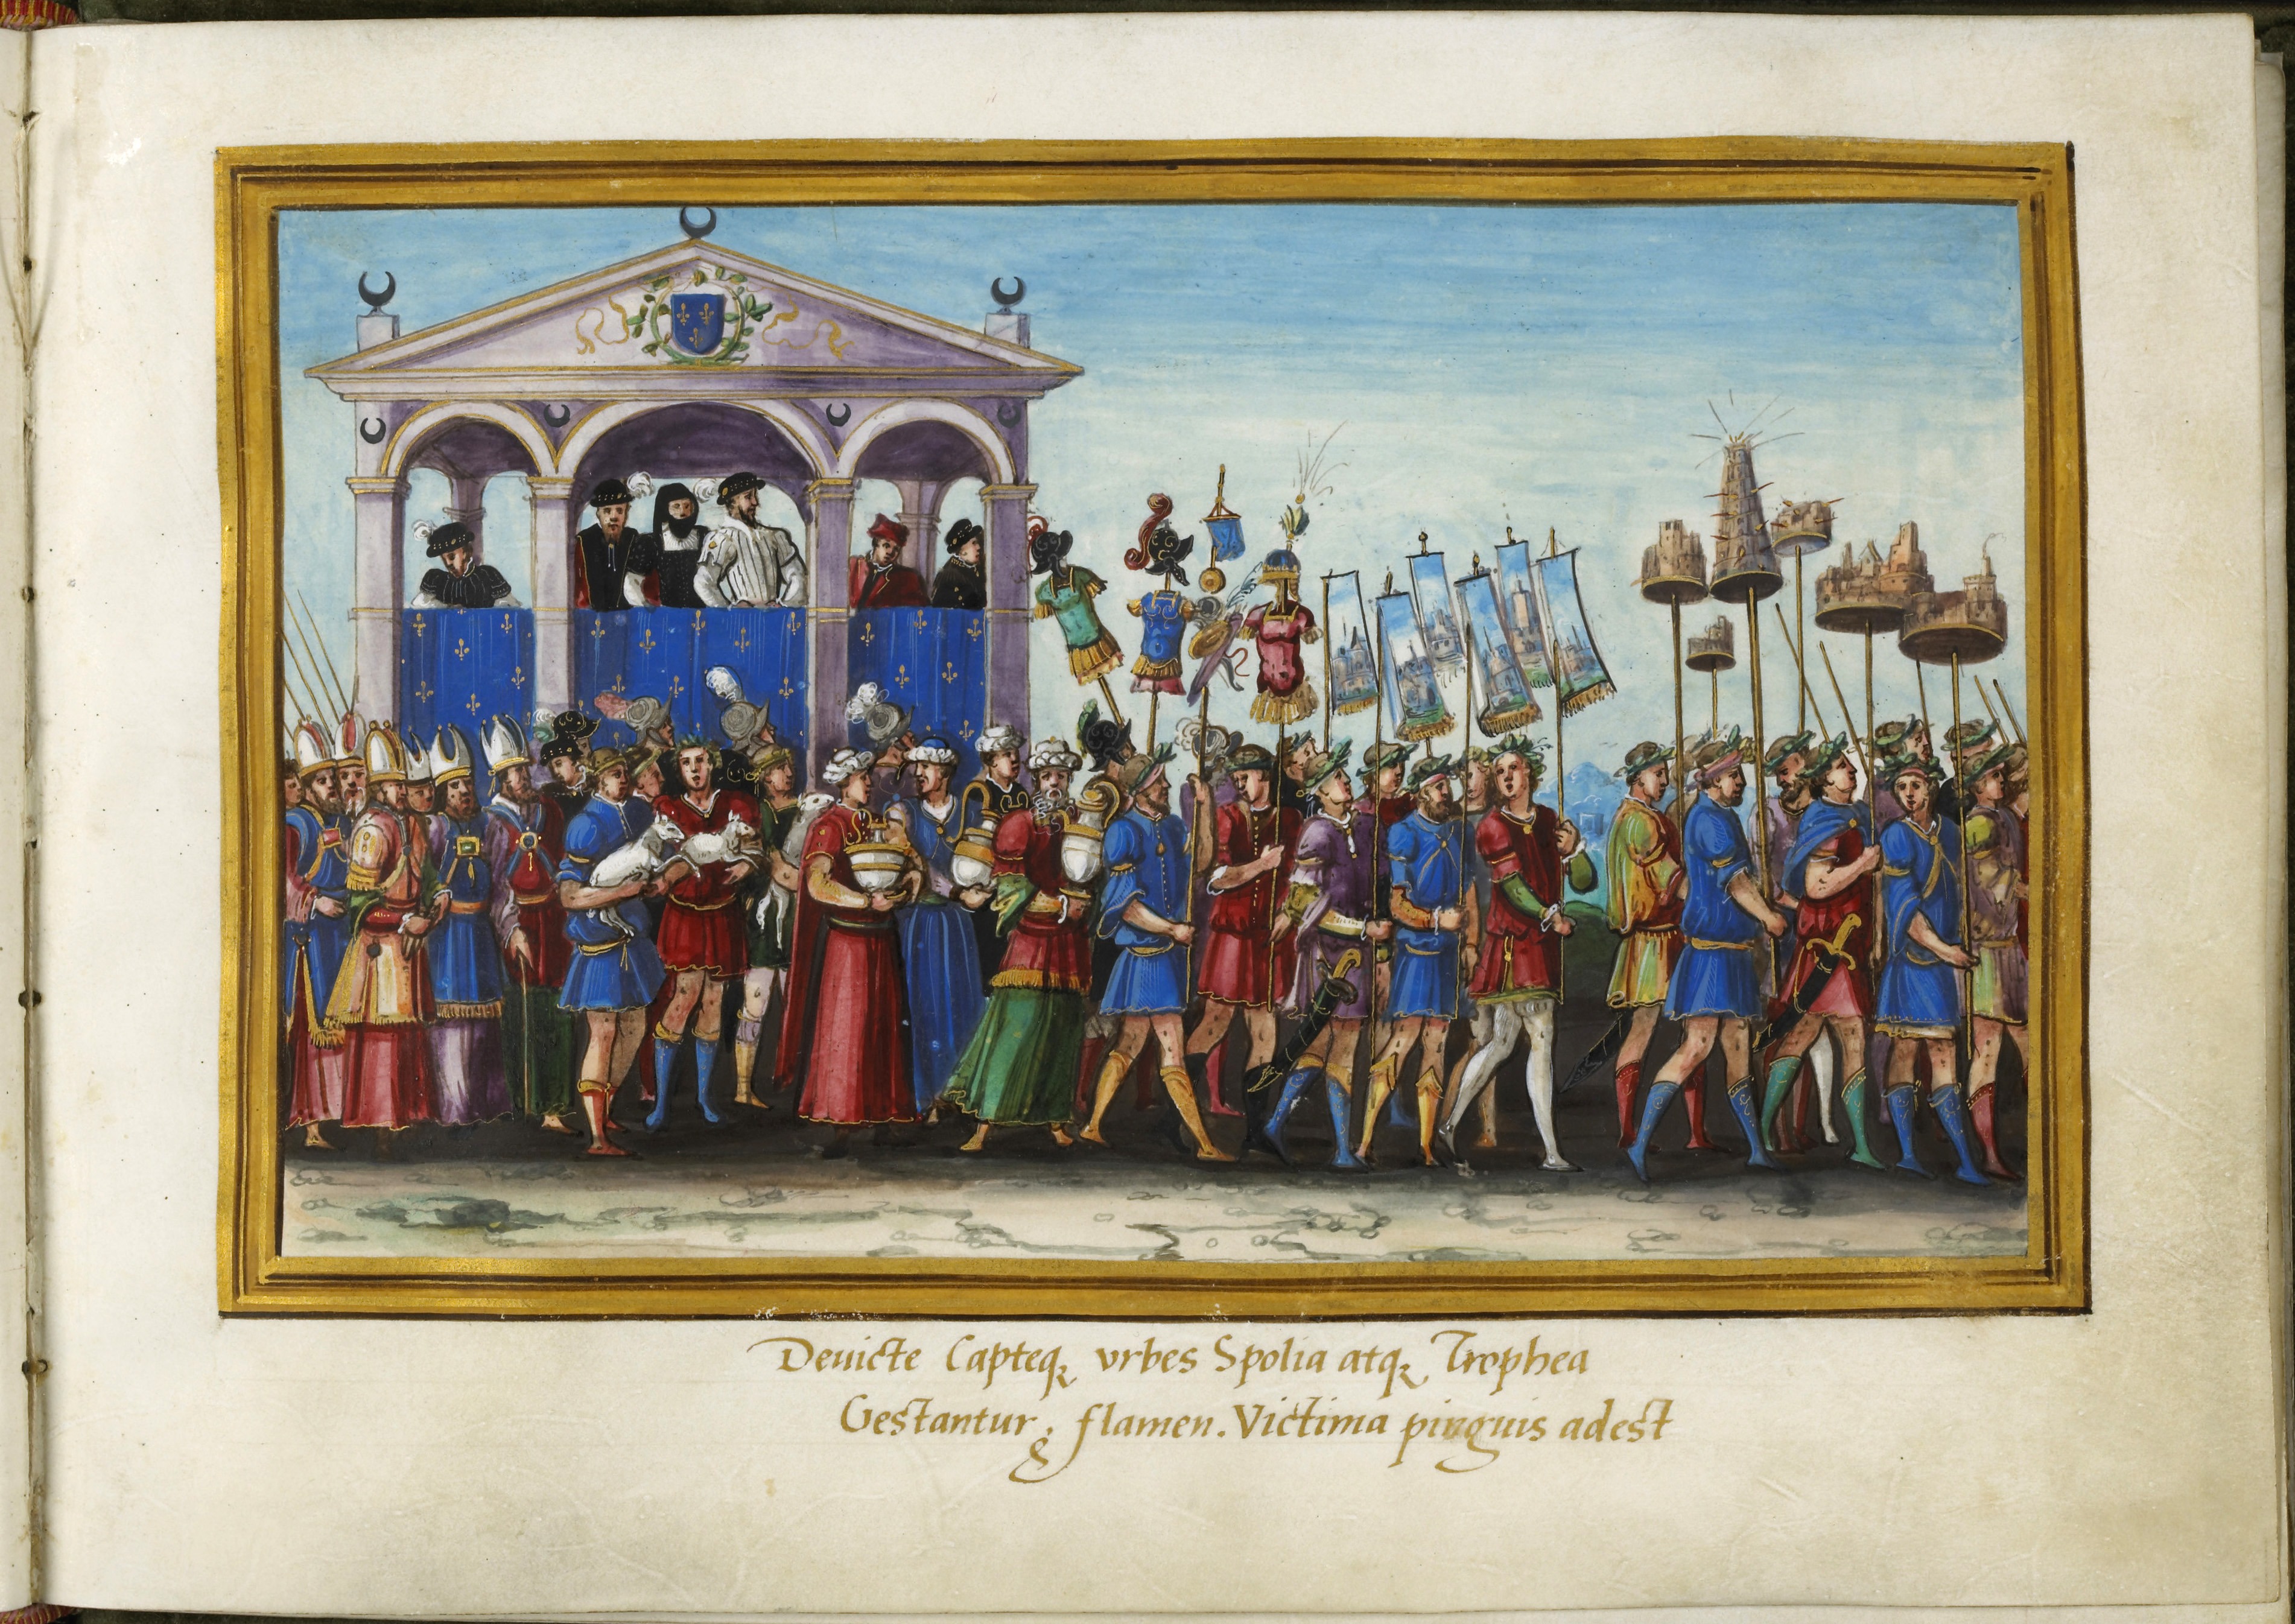 Deuicte Capteq, vrbes Spolia atq, Trophea
Gestantur; flamen. Victima pinguis adest